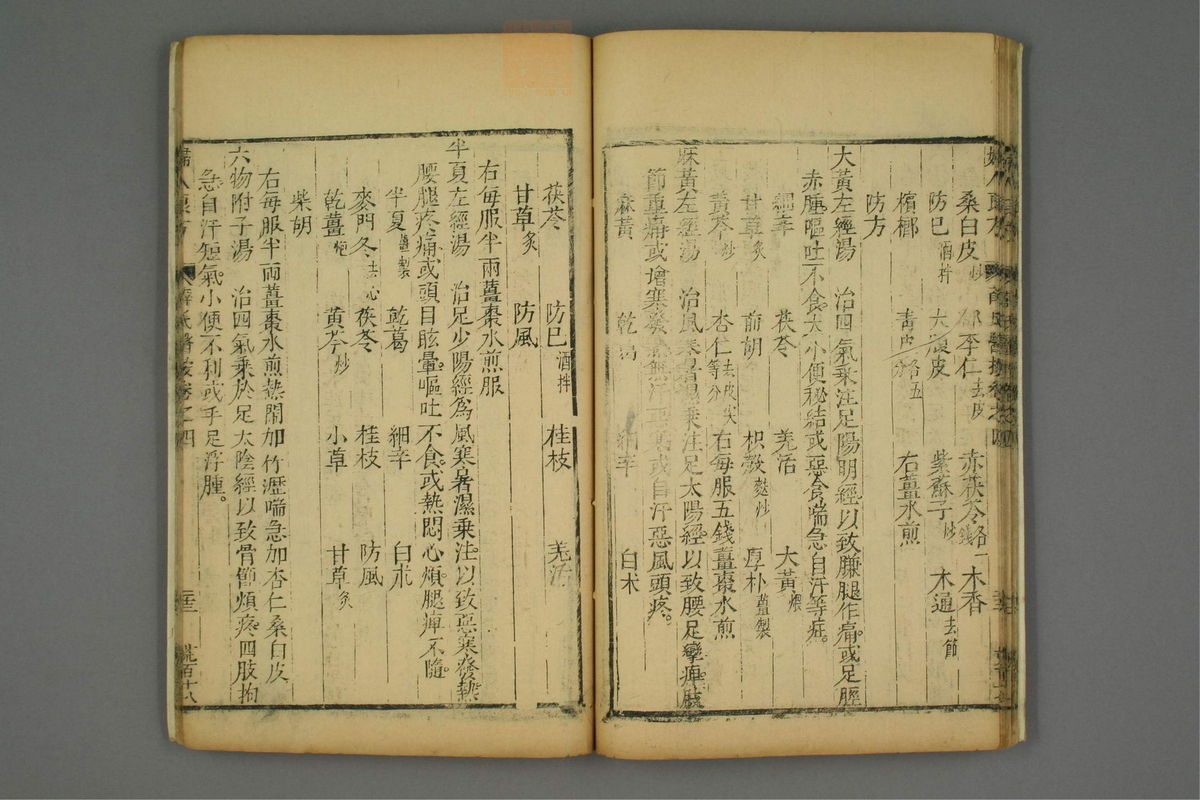 桑白皮炒 郁李仁去皮 赤茯苓各一錢 木香
防巳酒拌 大腹皮 紫蘇子炒 木通去節
檳榔 青皮各五分 右薑水煎
防方
大黃左經湯 治四氣乘注足陽明經以致䐐腿作痛或足脛
赤腫嘔吐不食大小便秘結或惡食喘急自汗等症
細辛 茯苓 羌活 大黃煨
甘草炙 前胡 枳殼麩炒 厚朴薑製
黃芩炒 杏仁去皮尖等分 右每服五錢薑棗水煎
麻黃左經湯 治風寒暑濕乘注足太陽經以致腰足攣痺關
節重痛或增寒發熱無汗或自汗惡風頭疼。
麻黃 乾葛 細辛 白朮
茯苓 防巳酒拌 桂枝 羌活
甘草炙 防風
右每服半兩薑棗水煎服
半夏左經湯 治足少陽經為風寒暑濕乘注以致惡寒發熱
腰腿疼痛或頭目眩暈。嘔吐不食。或熱悶心煩。腿痺不隨。
半夏薑製 乾葛 細辛 白朮
麥門冬去心 茯苓 桂枝 防風
乾薑炮 黃芩炒 小草 甘草炙
柴胡
右每服半兩薑棗水煎熱悶加竹瀝喘急加杏仁桑白皮
六物附子湯 治四氣乘於足太陰經以致骨節煩疼四肢拘
急自汗短氣。小便不利或手足浮腫。
婦人良方 薛氏醫按卷之四